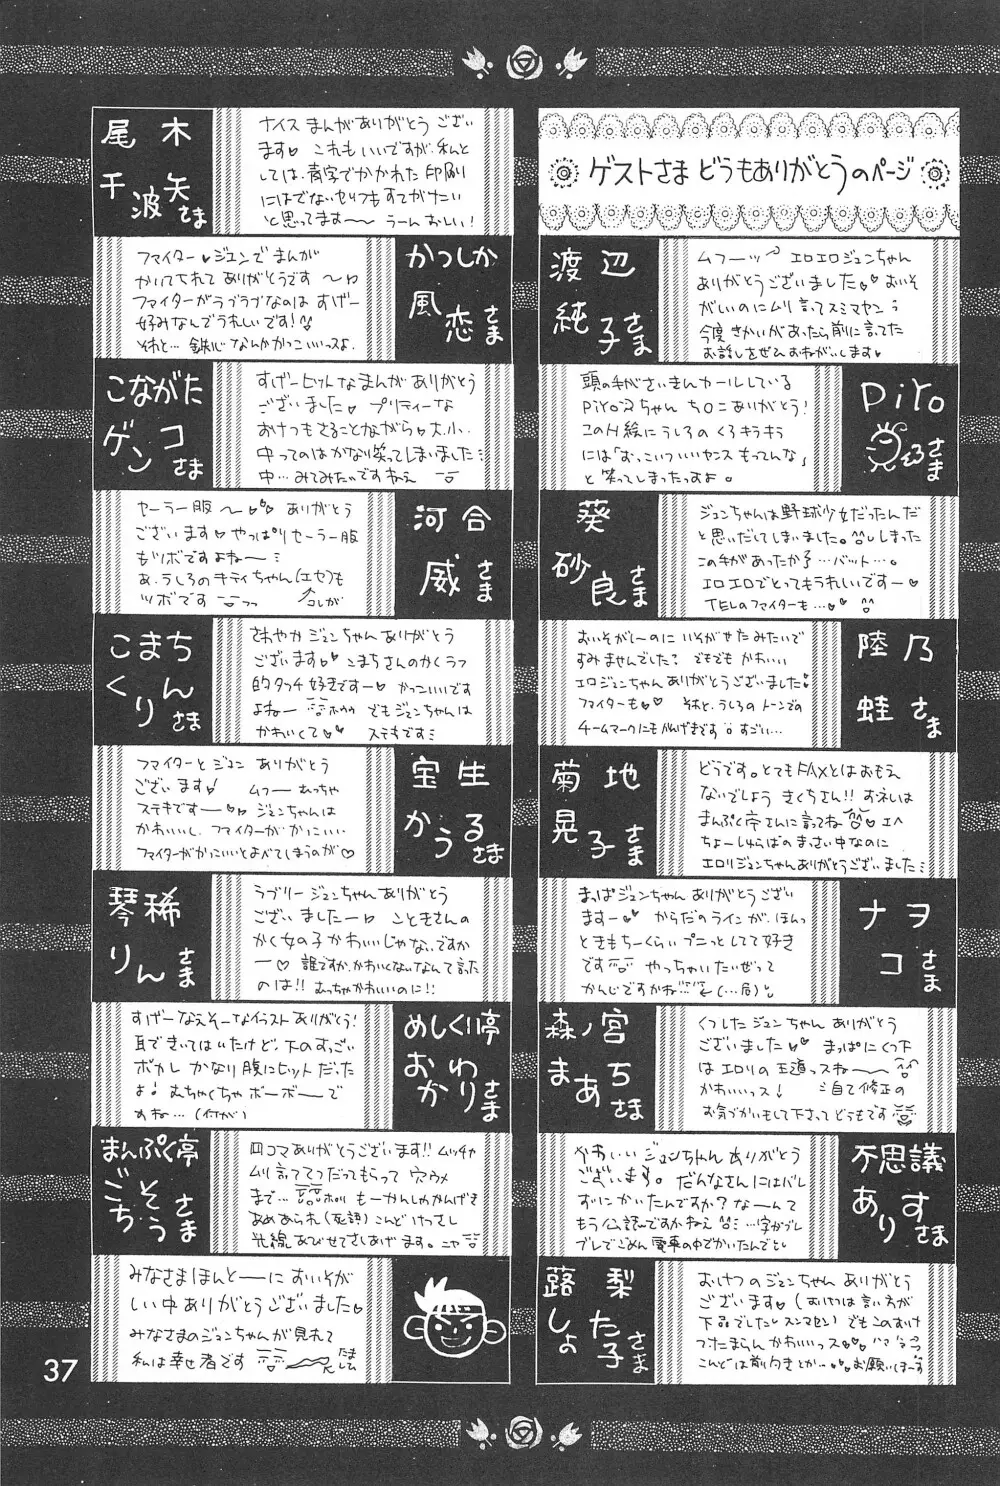 ゲストさま どうもありがとうのページ
渡辺
純子さま
ムフーッ エロエロジュンちゃん
ありがとうございました おいそ
がしいのにムリ言ってスミマセン
今度きかいがあったら前に言ってた
お話しをぜひおねがいします
Piro
さま
頭の毛がさいまんカールしている
ありがとう!
このH絵にうしろのくろキラキラ
には「む、こいついいセンスもってんな」
と笑ってしまったすよ。
葵
砂良さま
ジュンちゃんは野球少女だったんだ
と思いだしてしまいました。 しまった
この手があったか…バット…。
エロエロでとってもうれしいですー
TELのファイターも…
陸乃
蛙さま
おいそがしーのにいそがせたみたいで
すみませんでした? でもでもかわいい
エロジュンちゃんありがとうございました
ファイターも それと、うしろのトーンでの
チームマークにもかんげきです すごい…
菊地
晃子さま
どうです。とてもFAXとはおもえ
ないでしょう きくちさん!! すえしは
まんぷく亭さんに言ってね エへ
ちょーしゅらばのまっさい中なのに
エロリジュンちゃんありがとうございました
ナヲ
コさま
まっぱジュンちゃんありがとうござい
ますー からだのラインが、ほんっ
ときもちーくらいプニっとしてて好き
です やっちゃいたいぜって
かんじですかね (…局)
森ノ宮
まあちさま
くつしたジュンちゃん ありがとう
ございました まっぱにくつ下
は エロリの王道っスねー
かわいいっス! 自て修正の
お気づかいもして下さってどうもです
不思議
ありすさま
かわいいジュンちゃんありがとう
ございます。だんなさんにはバレ
ずにかいたんですか? なーんて
もう伝説ですかねえ …字がブレ
ブレでごめん電車の中でかいたんでと
蕗梨
しょた子さま
おけつのジュンちゃんありがとう
ございます (おけつは言い方が
下品でしたしスンマセン) でもこのおけ
つたまらんかわいいっス
こんどは前向きとか… お願いしまーす
尾木
千波矢さま
ナイスまんがありがとうござい
ます これもいいですが、私と
しては、青字でかかれた印刷
にはでないセリフもすてがたい
と思ってますーー うーんおしい!
かつしか
風恋さま
ファイター・ジュンでまんが
かいてくれてありがとうです
ファイターがラブラブなのはすげー
好みなんでうれしいです!
それと…鉄心なんかかっこいいっスよ
こながた
ゲンコさま
すげーヒットなまんがありがとう
ございました プリティーな
おけつもさることながら、大、小、
中ってのはかなり笑ってしまいました
中…みてみたいですねえ
河合
威さま
セーラー服〜 ありがとう
ございます やっぱりセーラー服
もツボですよねー
あ、うしろのキティちゃん(エセ)も
ツボです コレが
こまち
くりんさま
さわやかジュンちゃんありがとう
ございます こまちさんのかくラフ
的タッチ好きですー かっこいいです
よねー でもジュンちゃんは
かわいくて ステキです
宝生
かうるさま
ファイターとジュン ありがとう
ございます! ムフー むっちゃ
ステキですー ジュンちゃんは
かわいいし、ファイターがかっこいい
ファイターがかっこいいとよべてしまうのが
琴稀
りんさま
ラブリージュンちゃんありがとう
ございましたー ことききさんの
かく女の子かわいいじゃない、ですか
ー 誰ですか、かわいくないなんて言った
のは!! むっちゃかわいいのに!!
めしくい亭
おかわりさま
すげーなえそーなイラストありがとう!
耳できいてはいたけど、下のすっごい
ボカし かなり腹にヒットだった
よ! むちゃくちゃボーボーで
すね…(何が)
まんぷく亭
ごちそうさま
四コマありがとうございます!! ムッチャ
ムリ言ってつだってもらって 穴ウメ
まで… もーかんしゃかんげき
あめあられ(死語) こんどけっさし
光線あびせてさしあげます。ニャ
みなさまほんとーーにおいそが
しい中ありがとうございました
みなさまのジュンちゃんが見れて
私は幸せ者です
37